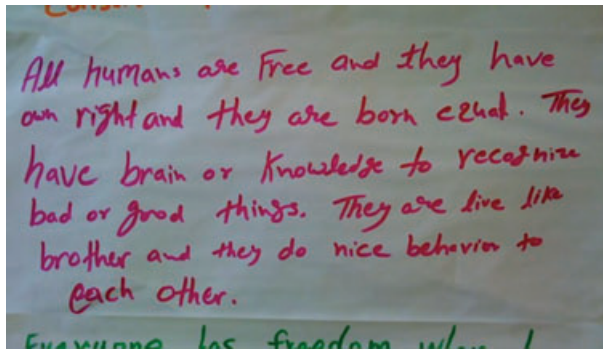 All humans are Free and they have
own right and they are born equal. They
have brain or Knowledge to recognize
bad or good things. They are live like
brother and they do nice behavior to
each other.
Everyone has freedom when